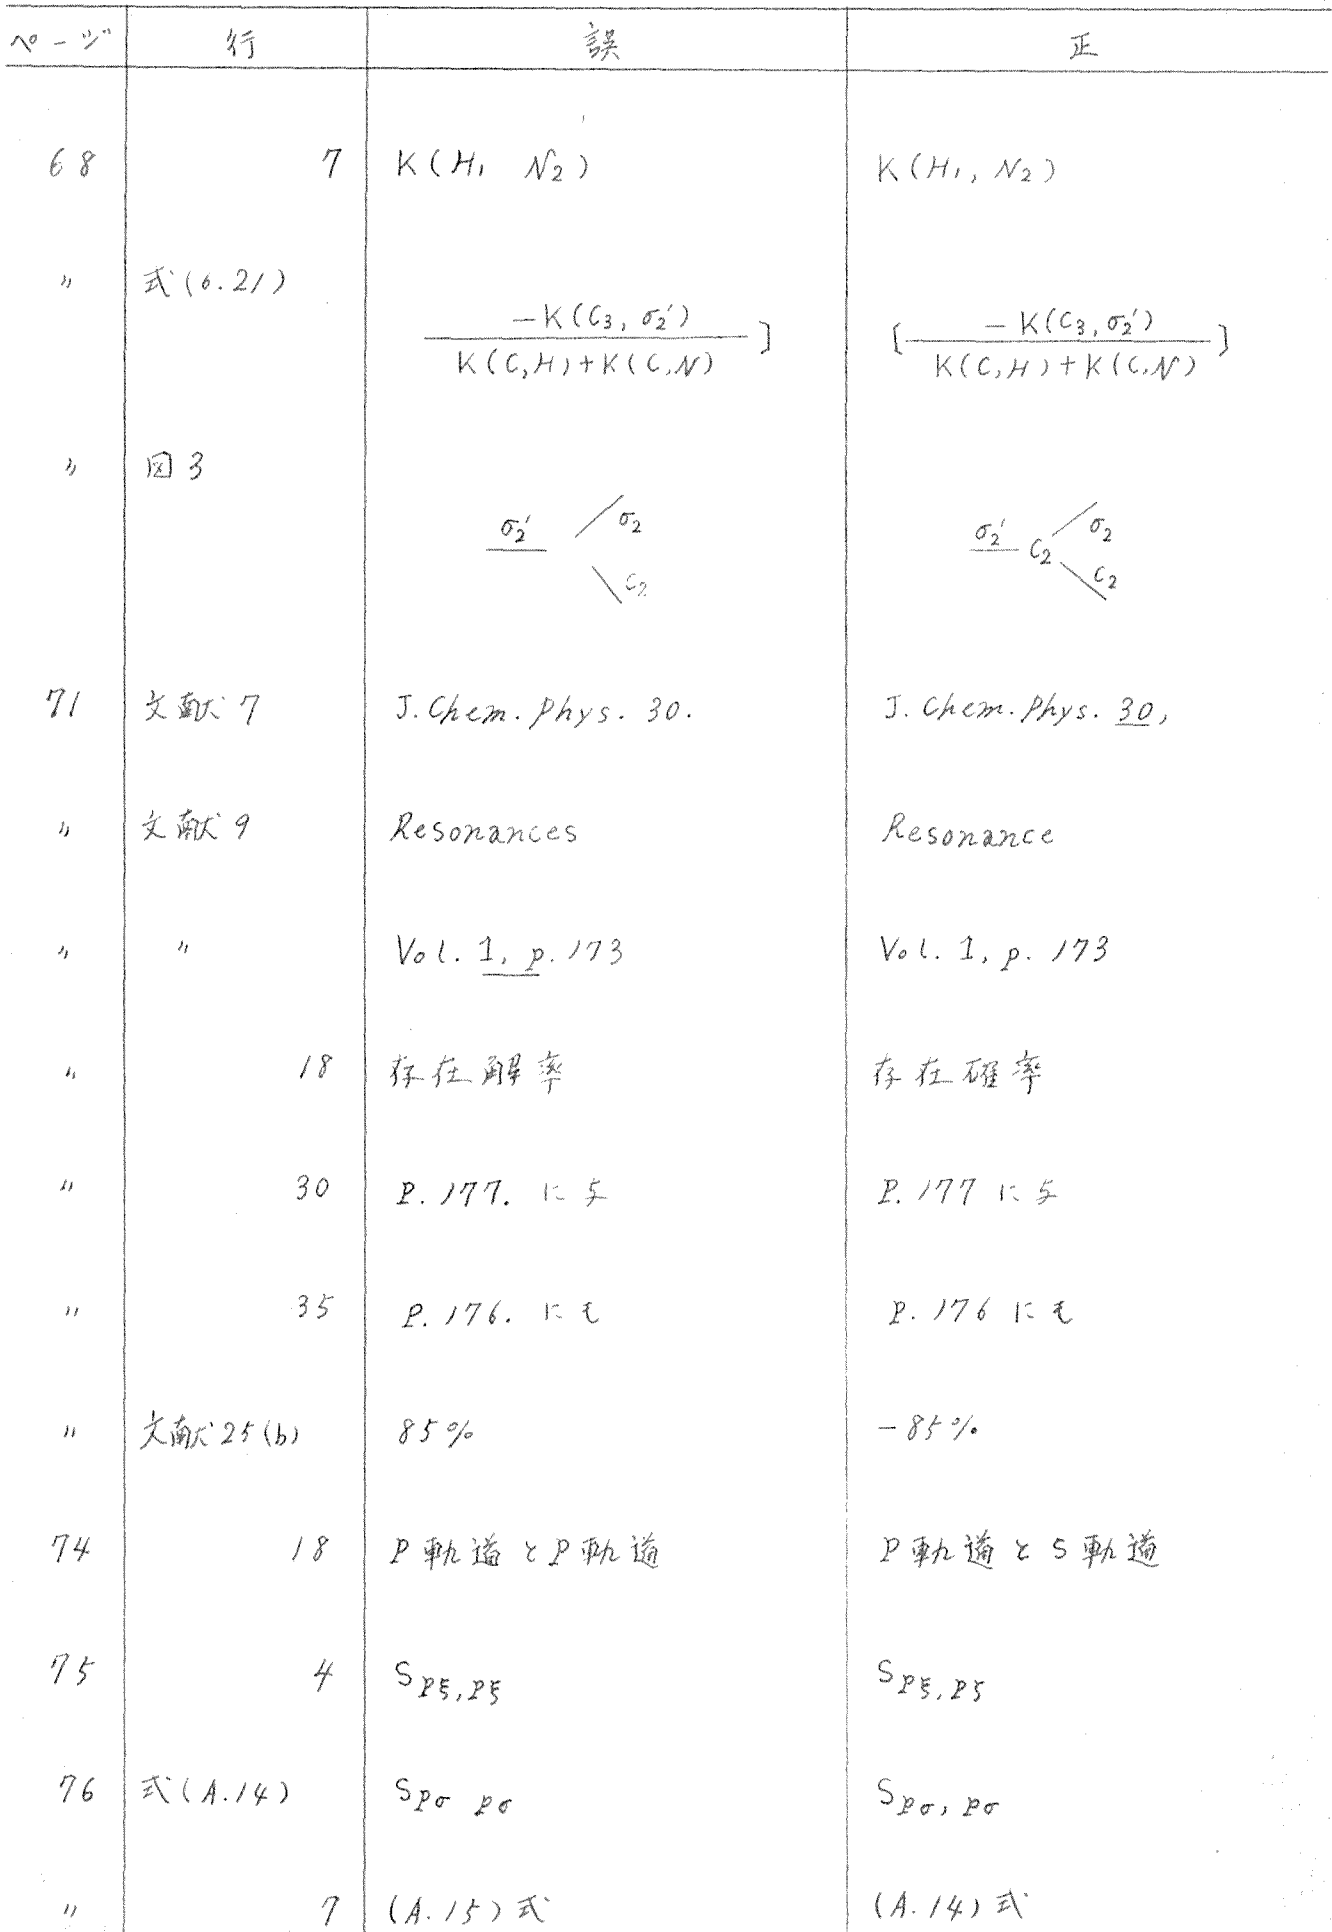 ページ 行 誤 正
68 7 K(H₁ N₂) K(H₁, N₂)
〃 式(6.21)
−K(C₃, σ₂′) − K(C₃, σ₂′)
] [ ]
K(C,H)+K(C,N) K(C,H)+K(C,N)
〃 図3
σ₂′ σ₂ σ₂′ C₂ σ₂
C₂ C₂
71 文献7 J. Chem. Phys. 30. J. Chem. Phys. 30,
〃 文献9 Resonances Resonance
〃 〃 Vol. 1, p. 173 Vol. 1, p. 173
〃 18 存在解率 存在確率
〃 30 P. 177. に与 P. 177 に与
〃 35 P. 176. にも P. 176 にも
〃 文献25(b) 85% −85%
74 18 P軌道とP軌道 P軌道とS軌道
75 4 S_Pξ,Pξ S_Pξ,Pζ
76 式(A.14) S_Pσ Pσ S_Pσ,Pσ
〃 7 (A.15)式 (A.14)式